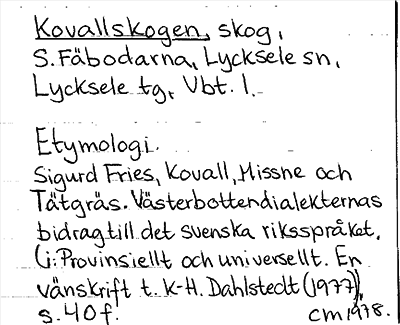 Kovallskogen, skog,
S. Fäbodarna, Lycksele sn,
Lycksele tg, Vbt. l.
Etymologi.
Sigurd Fries, Kovall, Missne och
Tätgräs. Västerbottendialekternas
bidrag till det svenska riksspråket.
(i: Provinsiellt och universellt. En
vänskrift t. K-H. Dahlstedt (1977)),
s. 40 f. cm 1978.